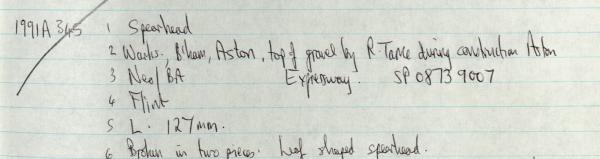 1991A345 1 Spearhead
2 Warks, B'ham, Aston, top of gravel by R. Tame during construction Aston
3 Neo/BA Expressway. SP 0873 9007
4 Flint
5 L. 127mm.
6 Broken in two pieces. Leaf shaped spearhead.